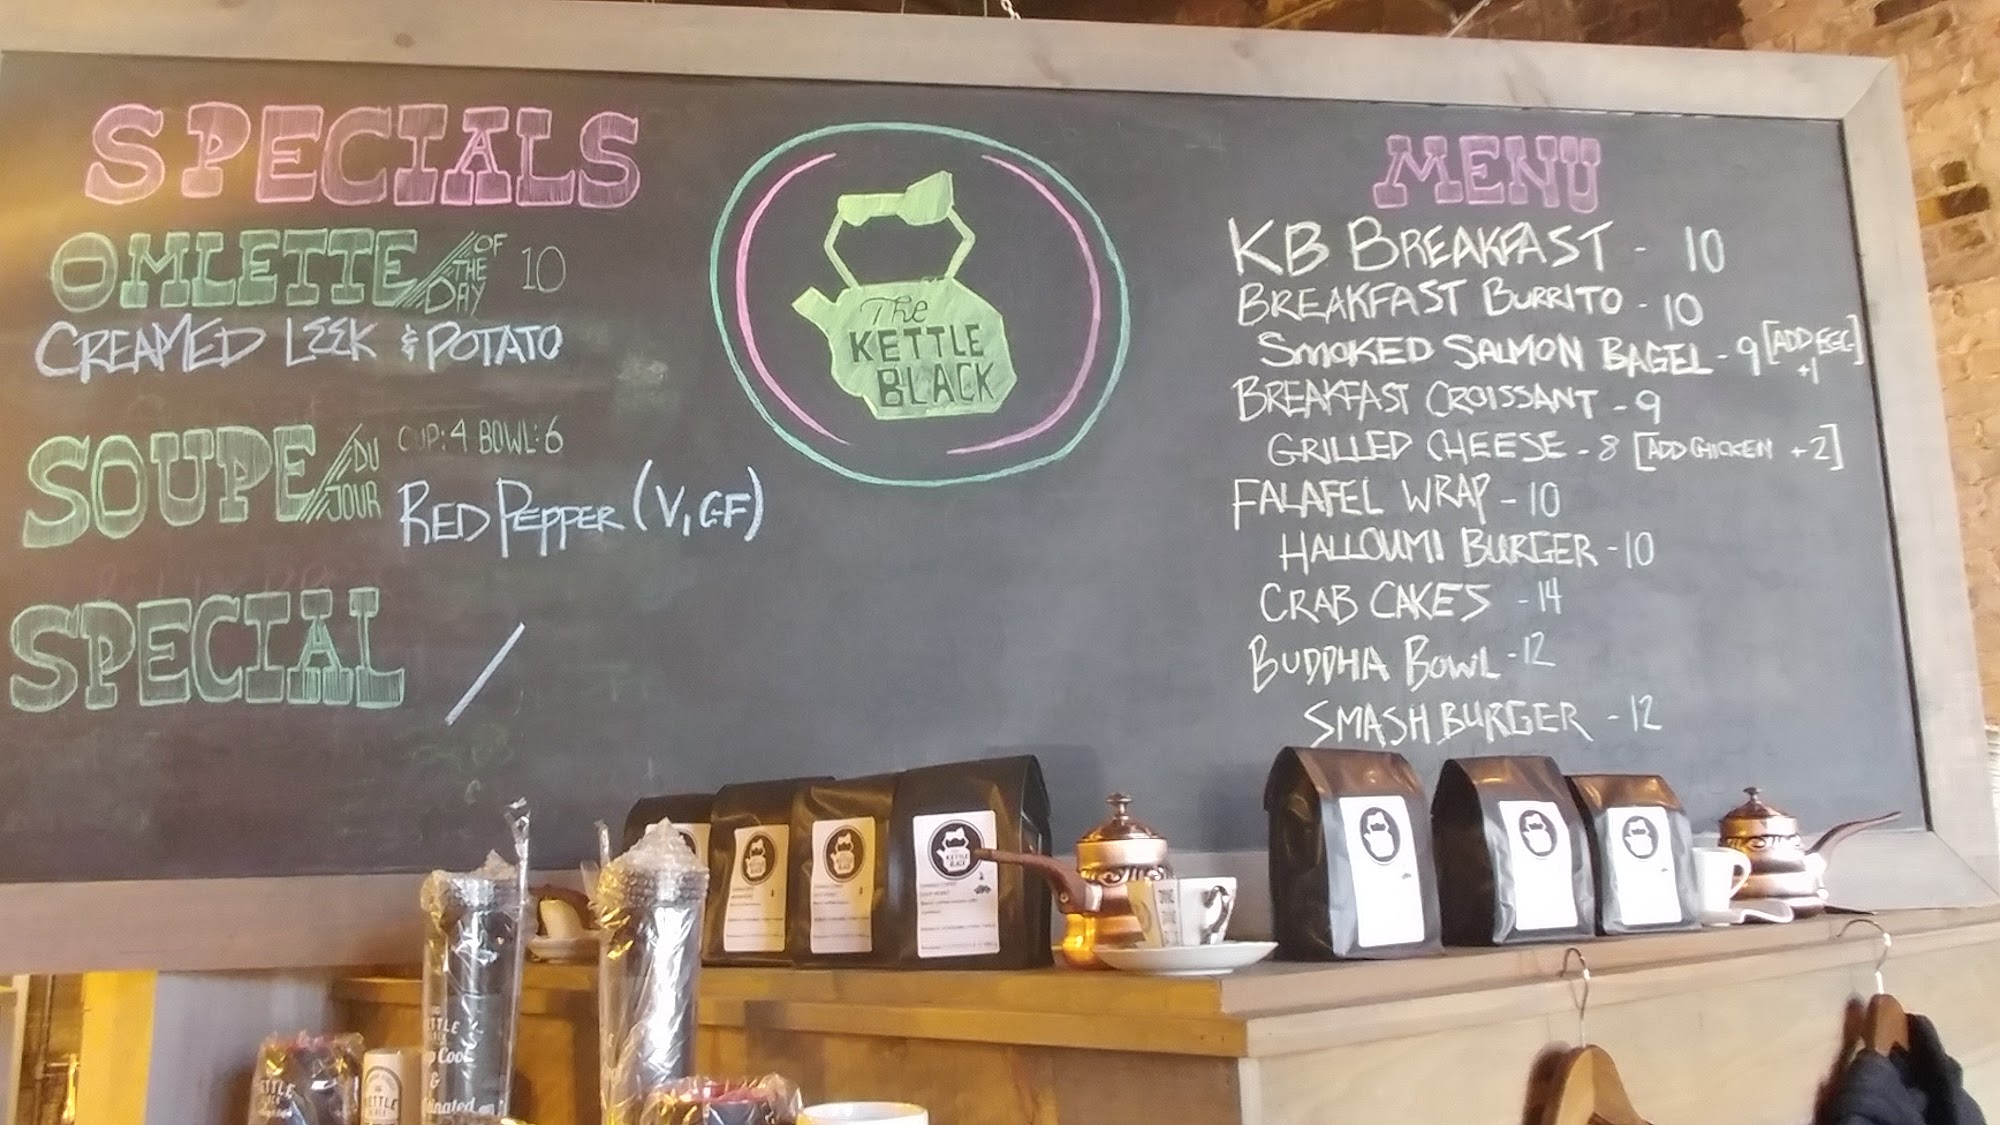 SPECIALS
OMLETTE OF THE DAY 10
CREAMED LEEK & POTATO
SOUPE DU JOUR CUP: 4 BOWL: 6
RED PEPPER (V, GF)
SPECIAL /
The
KETTLE
BLACK
MENU
KB BREAKFAST - 10
BREAKFAST BURRITO - 10
SMOKED SALMON BAGEL - 9 [ADD EGG +1]
BREAKFAST CROISSANT - 9
GRILLED CHEESE - 8 [ADD CHICKEN +2]
FALAFEL WRAP - 10
HALLOUMI BURGER - 10
CRAB CAKES - 14
BUDDHA BOWL - 12
SMASH BURGER - 12
KETTLE
BLACK
KETTLE
Cool
&
KETTLE
KETTLE